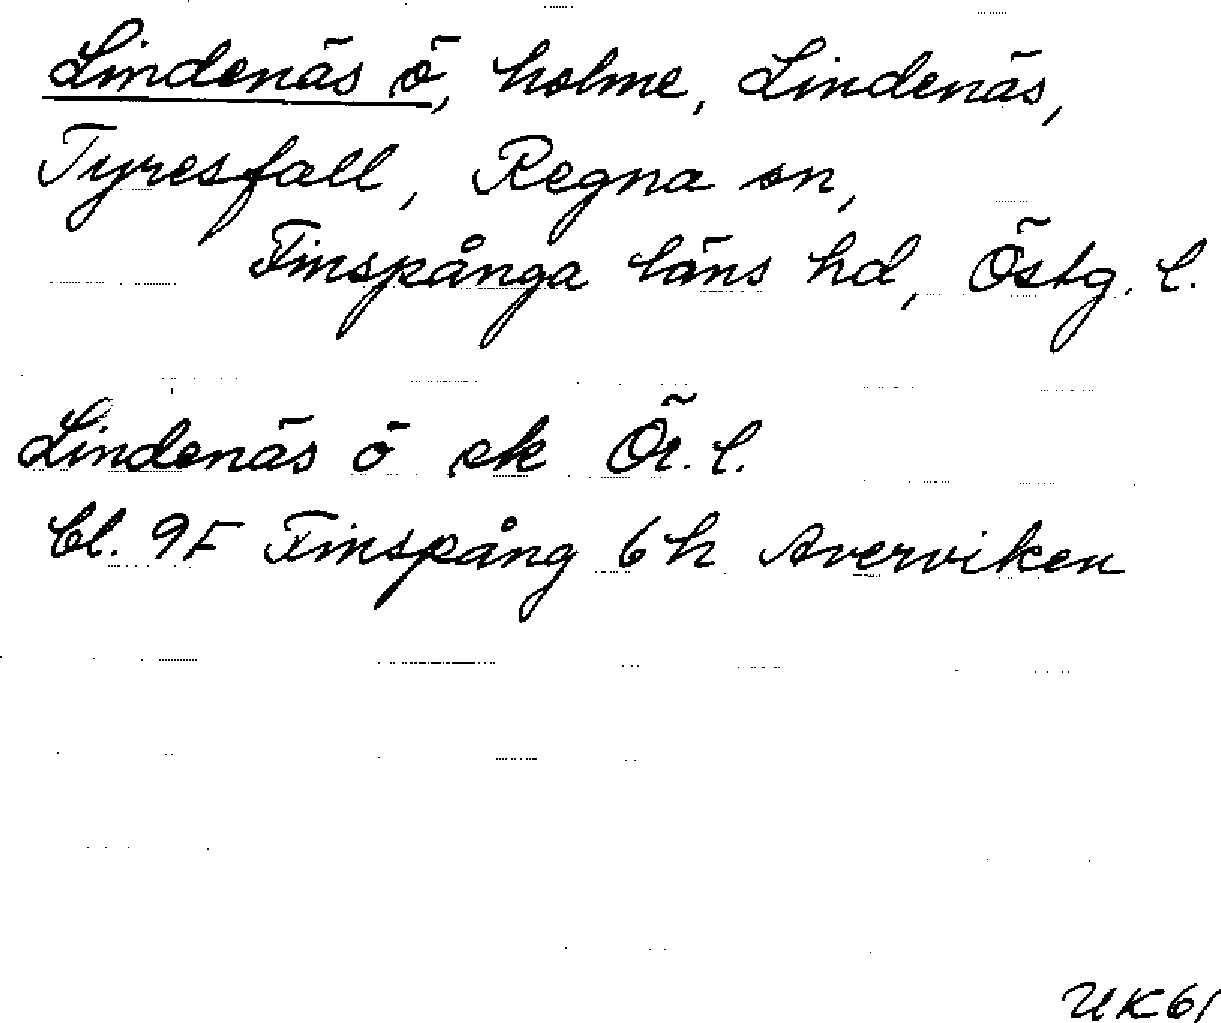 Lindenäs ö, holme, Lindenäs,
Tyresfall, Regna sn,
Finspånga läns hd, Östg. l.
Lindenäs ö ek Ör. l.
bl. 9F Finspång 6h Averviken
UK61